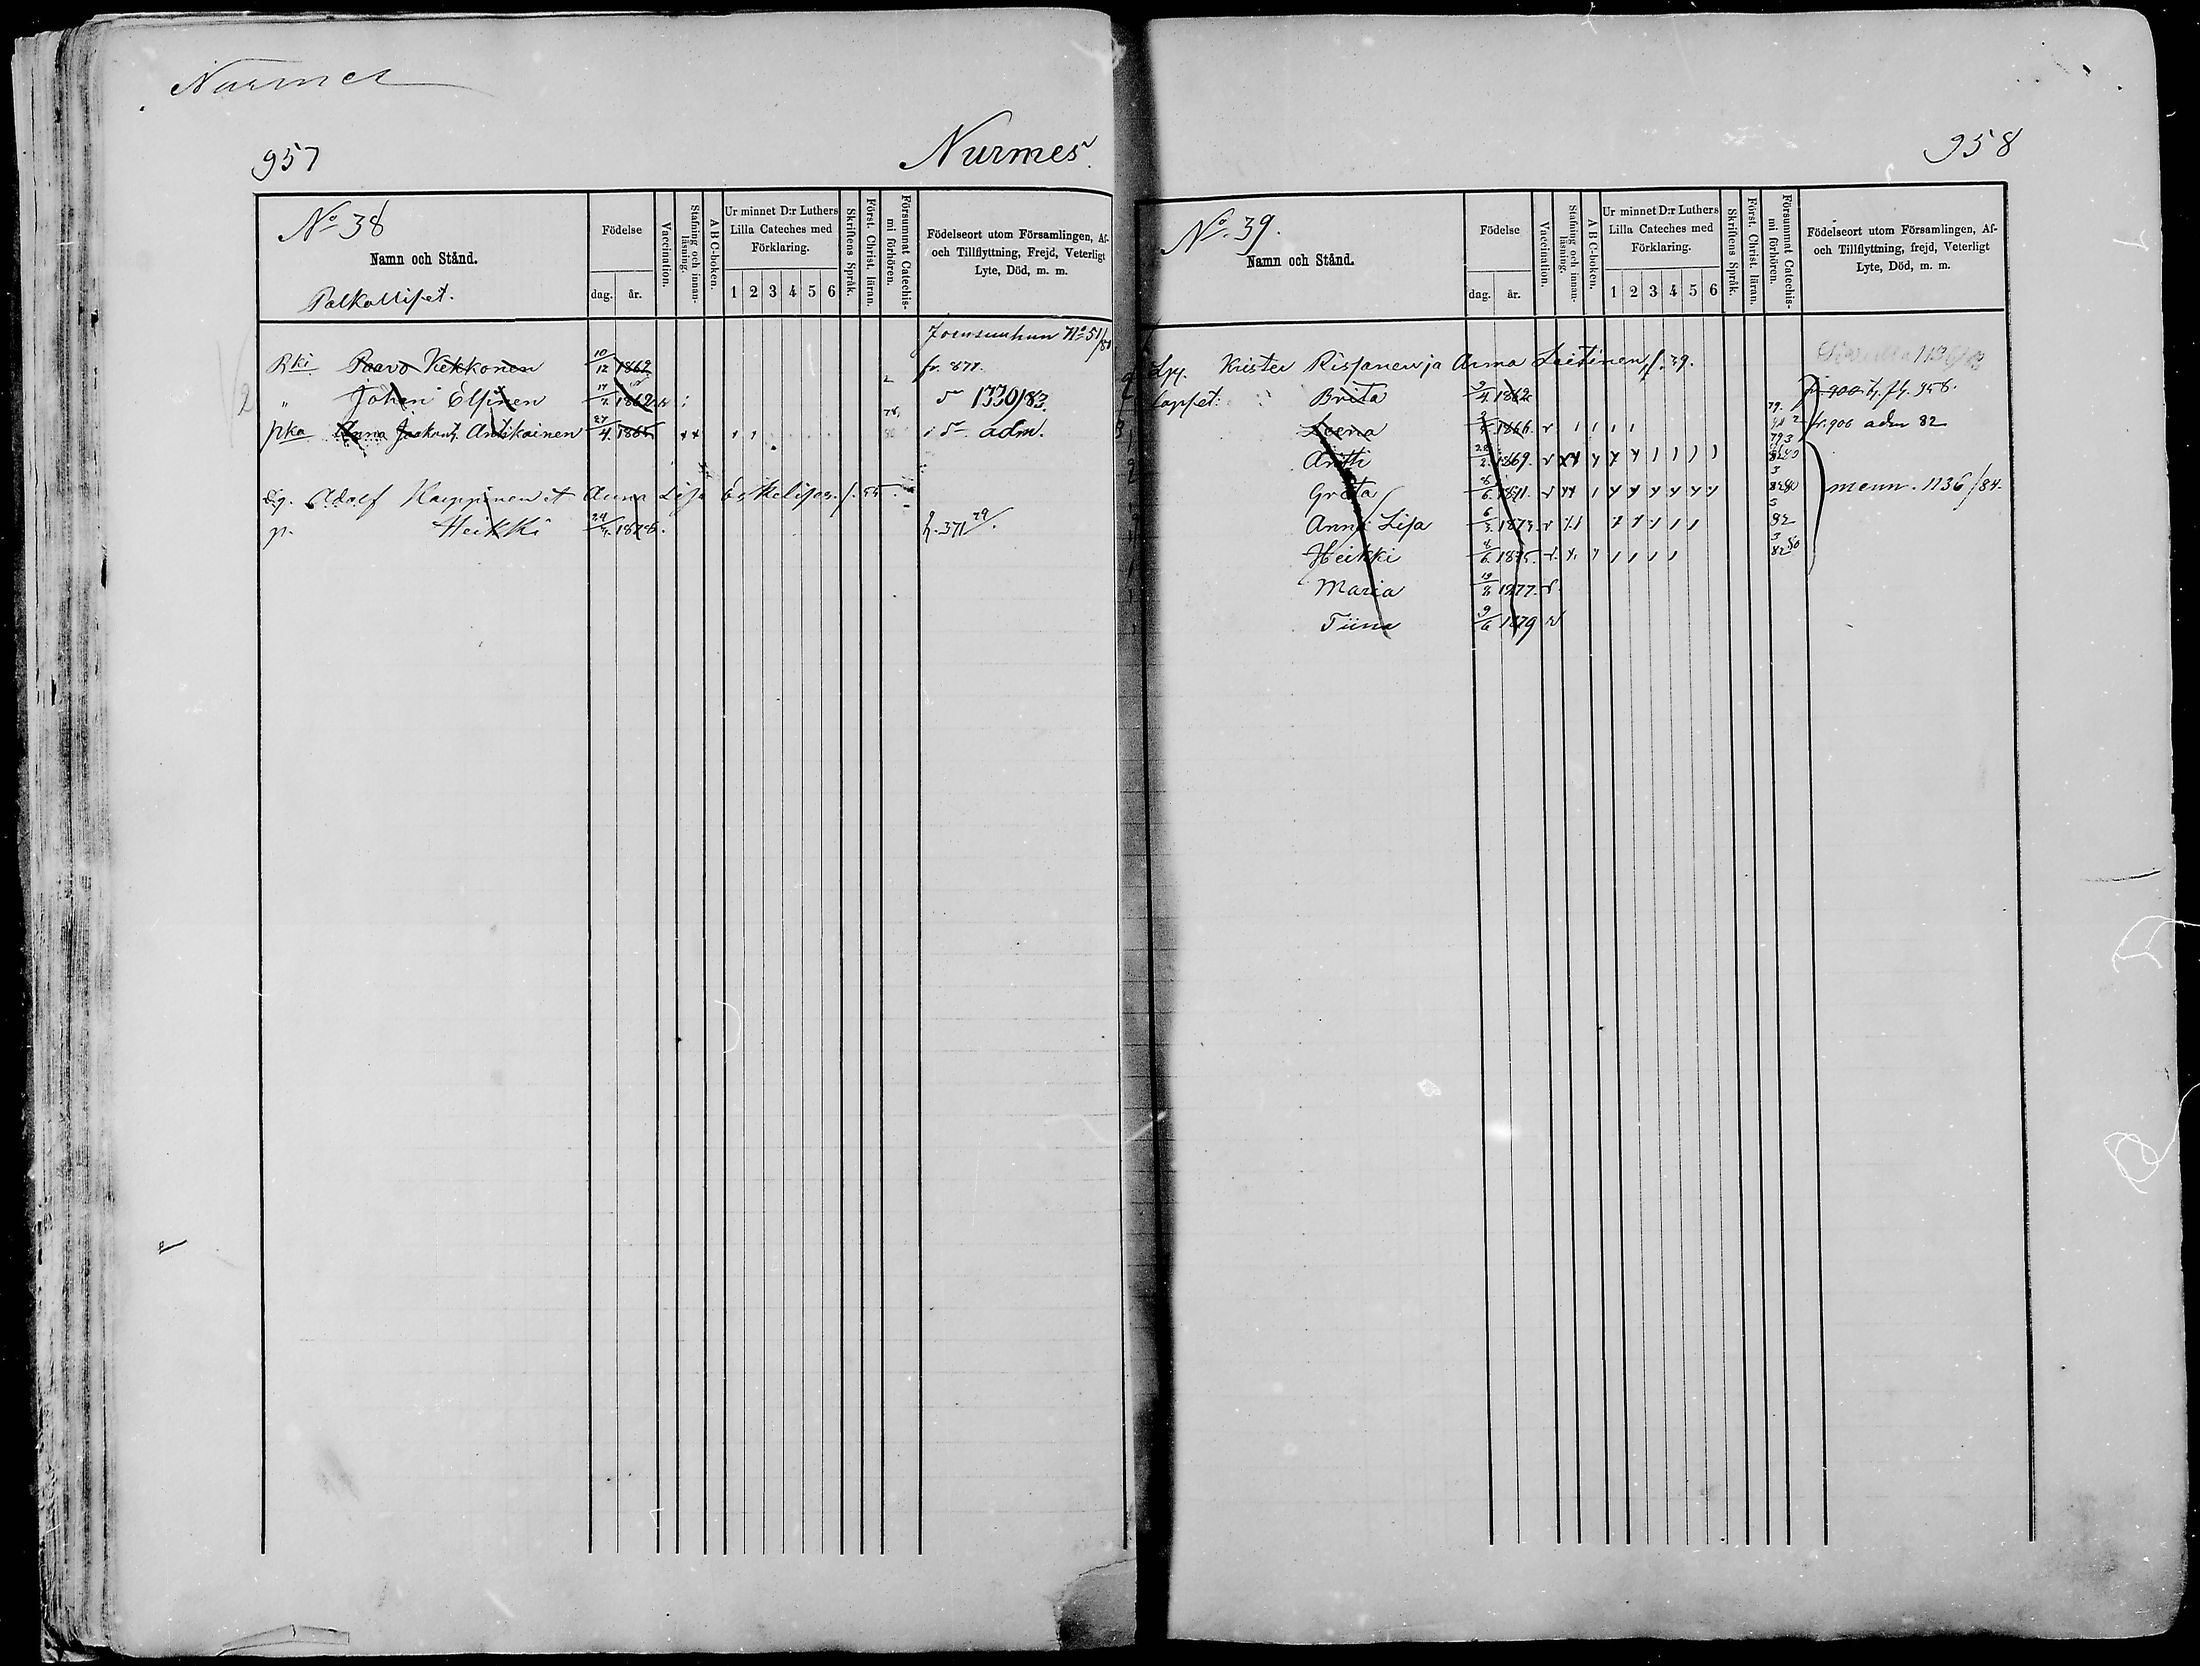 Nurmes
957
Nurmes
No 38
Namn och Stånd.
Födelse
dag. år.
Vaccination.
Stafning och innan-läsning.
A B C-boken.
Ur minnet D:r Luthers
Lilla Cateches med
Förklaring.
1 2 3 4 5 6
Skriftens Språk.
Först. Christ. läran.
Försummat Catechis-mi förhören.
Födelseort utom Församlingen, Af-
och Tillflyttning, Frejd, Veterligt
Lyte, Död, m. m.
Palkolliset.
Joensuuhun No 51/81
Rki Paavo Kekkonen 10/12 1862 fr. 877.
" Johan Elsinen 1862 1330/83.
pka Anna Antikainen 27/4 1865 adm.
Adolf Karppinen et Anna Lisa Eskelison f. 55.
p. Heikki 1876. 371 79/.
958
No. 39.
Namn och Stånd.
Födelse
dag. år.
Vaccination.
Stafning och innan-läsning.
A B C-boken.
Ur minnet D:r Luthers
Lilla Cateches med
Förklaring.
1 2 3 4 5 6
Skriftens Språk.
Först. Christ. läran.
Försummat Catechis-mi förhören.
Födelseort utom Församlingen, Af-
och Tillflyttning, frejd, Veterligt
Lyte, Död, m. m.
Lpp. Krister Rissanen ja Anna Leetinen, f. 39.
Lapset: Brita 1862 fr. 900
Leena 1866. fr. 900 adm 82
Antti 1869.
Greta 8/6 1871. menn. 1136/84.
Anna Lisa 6/3 1873.
Heikki 8/6 1875.
Maria 19/8 1877.
Tiina 9/6 1879